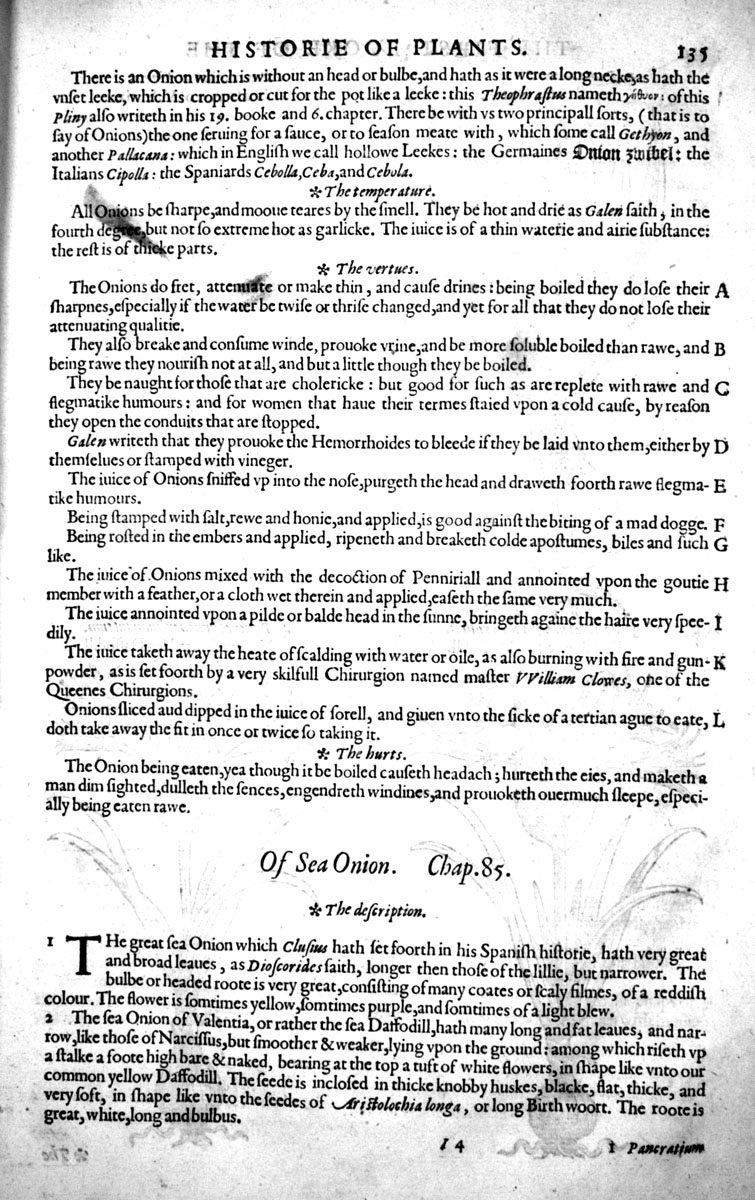 HISTORIE OF PLANTS. 135
There is an Onion which is without an head or bulbe,and hath as it were a long necke,as hath the
vnſet leeke, which is cropped or cut for the pot like a leeke: this Theophraſtus nameth γήθυον: of this
Pliny alſo writeth in his 19. booke and 6. chapter. There be with vs two principall ſorts, (that is to
ſay of Onions)the one ſeruing for a ſauce, or to ſeaſon meate with, which ſome call Gethyon, and
another Pallacana: which in Engliſh we call hollowe Leekes: the Germaines Onion zwibel: the
Italians Cipolla: the Spaniards Cebolla,Ceba,and Cebola.
* The temperature.
All Onions be ſharpe,and mooue teares by the ſmell. They be hot and drie as Galen ſaith, in the
fourth degree,but not ſo extreme hot as garlicke. The iuice is of a thin waterie and airie ſubſtance:
the reſt is of thicke parts.
* The vertues.
The Onions do fret, attenuate or make thin, and cauſe drines: being boiled they do loſe their A
ſharpnes,eſpecially if the water be twiſe or thriſe changed,and yet for all that they do not loſe their
attenuating qualitie.
They alſo breake and conſume winde, prouoke vrine,and be more ſoluble boiled than rawe, and B
being rawe they nouriſh not at all, and but a little though they be boiled.
They be naught for thoſe that are cholericke: but good for ſuch as are replete with rawe and C
flegmatike humours: and for women that haue their termes ſtaied vpon a cold cauſe, by reaſon
they open the conduits that are ſtopped.
Galen writeth that they prouoke the Hemorrhoides to bleede if they be laid vnto them,either by D
themſelues or ſtamped with vineger.
The iuice of Onions ſniffed vp into the noſe,purgeth the head and draweth foorth rawe flegma- E
tike humours.
Being ſtamped with ſalt,rewe and honie,and applied,is good againſt the biting of a mad dogge. F
Being roſted in the embers and applied, ripeneth and breaketh colde apoſtumes, biles and ſuch G
like.
The iuice of Onions mixed with the decoction of Penniriall and annointed vpon the goutie H
member with a feather,or a cloth wet therein and applied,eaſeth the ſame very much.
The iuice annointed vpon a pilde or balde head in the ſunne, bringeth againe the haire very ſpee- I
dily.
The iuice taketh away the heate of ſcalding with water or oile, as alſo burning with fire and gun- K
powder, as is ſet foorth by a very skilfull Chirurgion named maſter VVilliam Clowes, one of the
Queenes Chirurgions.
Onions ſliced aud dipped in the iuice of ſorell, and giuen vnto the ſicke of a tertian ague to eate, L
doth take away the fit in once or twice ſo taking it.
* The hurts.
The Onion being eaten,yea though it be boiled cauſeth headach; hurteth the eies, and maketh a
man dim ſighted,dulleth the ſences,engendreth windines,and prouoketh ouermuch ſleepe, eſpeci-
ally being eaten rawe.
Of Sea Onion. Chap.85.
* The deſcription.
1 THe great ſea Onion which Cluſius hath ſet foorth in his Spaniſh hiſtorie, hath very great
and broad leaues, as Dioſcorides ſaith, longer then thoſe of the lillie, but narrower. The
bulbe or headed roote is very great,conſiſting of many coates or ſcaly filmes, of a reddiſh
colour. The flower is ſomtimes yellow,ſomtimes purple,and ſomtimes of a light blew.
2 The ſea Onion of Valentia, or rather the ſea Daffodill,hath many long and fat leaues, and nar-
row,like thoſe of Narciſſus,but ſmoother & weaker,lying vpon the ground: among which riſeth vp
a ſtalke a foote high bare & naked, bearing at the top a tuft of white flowers, in ſhape like vnto our
common yellow Daffodill. The ſeede is incloſed in thicke knobby huskes, blacke, flat, thicke, and
very ſoft, in ſhape like vnto the ſeedes of Ariſtolochia longa, or long Birth woort. The roote is
great, white,long and bulbus.
I 4 1 Pancratium